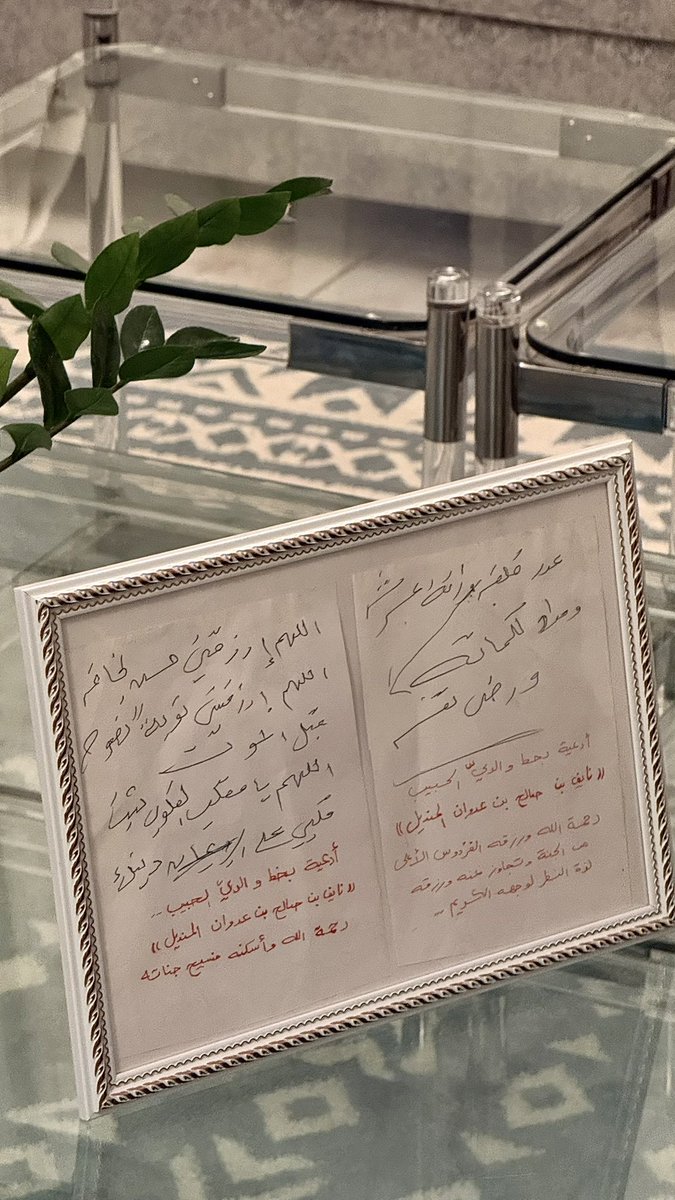 عدد خلقه وزنة عرشه
ومداد كلماته
ورضى نفسه
أدعية بخط والديّ الحبيب
« نايف بن صالح بن عدوان المنديل »
رحمة الله ورزقه الفردوس الأعلى
من الجنة وتجاوز عنه ورزقه
لذة النظر لوجهه الكريم ..
اللهم إرزقني حسن الخاتمه
اللهم إرزقني توبة النصوح
قبل الموت
اللهم يا مقلب القلوب ثبت
قلبي على دينك
أدعية بخط والديّ الحبيب ..
« نايف بن صالح بن عدوان المنديل »
رحمة الله وأسكنه فسيح جناته